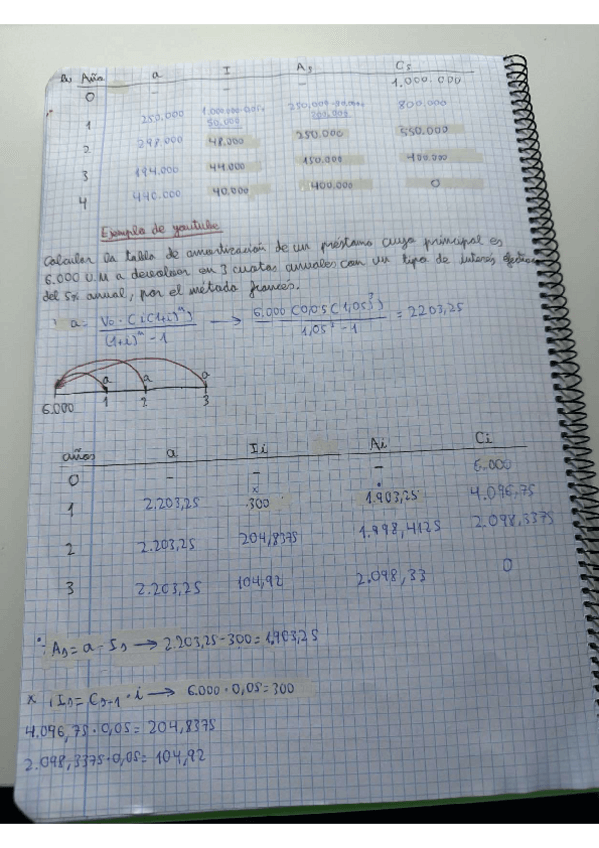 Año a I As Cs
0 - - - 1.000.000
1 250.000 1.000.000·0,05= 50.000 250.000-50.000= 200.000 800.000
2 298.000 48.000 250.000 550.000
3 194.000 44.000 150.000 400.000
4 440.000 40.000 400.000 0
Ejemplo de youtube
Calcular la tabla de amortización de un préstamo cuyo principal es
6.000 U.M a devolver en 3 cuotas anuales con un tipo de interés efectivo
del 5% anual, por el método francés.
a= V₀·(i(1+i)ⁿ) / (1+i)ⁿ - 1 → 6.000 (0,05(1,05³) / 1,05³ - 1 = 2203,25
a a a
6.000 1 2 3
años a Ii Ai Ci
0 - - - 6.000
x
1 2.203,25 300 1.903,25 4.096,75
2 2.203,25 204,8375 1.998,4125 2.098,3375
3 2.203,25 104,92 2.098,33 0
As= a - Is → 2.203,25-300=1.903,25
x Is= Cs-1 · i → 6.000·0,05=300
4.096,75·0,05= 204,8375
2.098,3375·0,05= 104,92